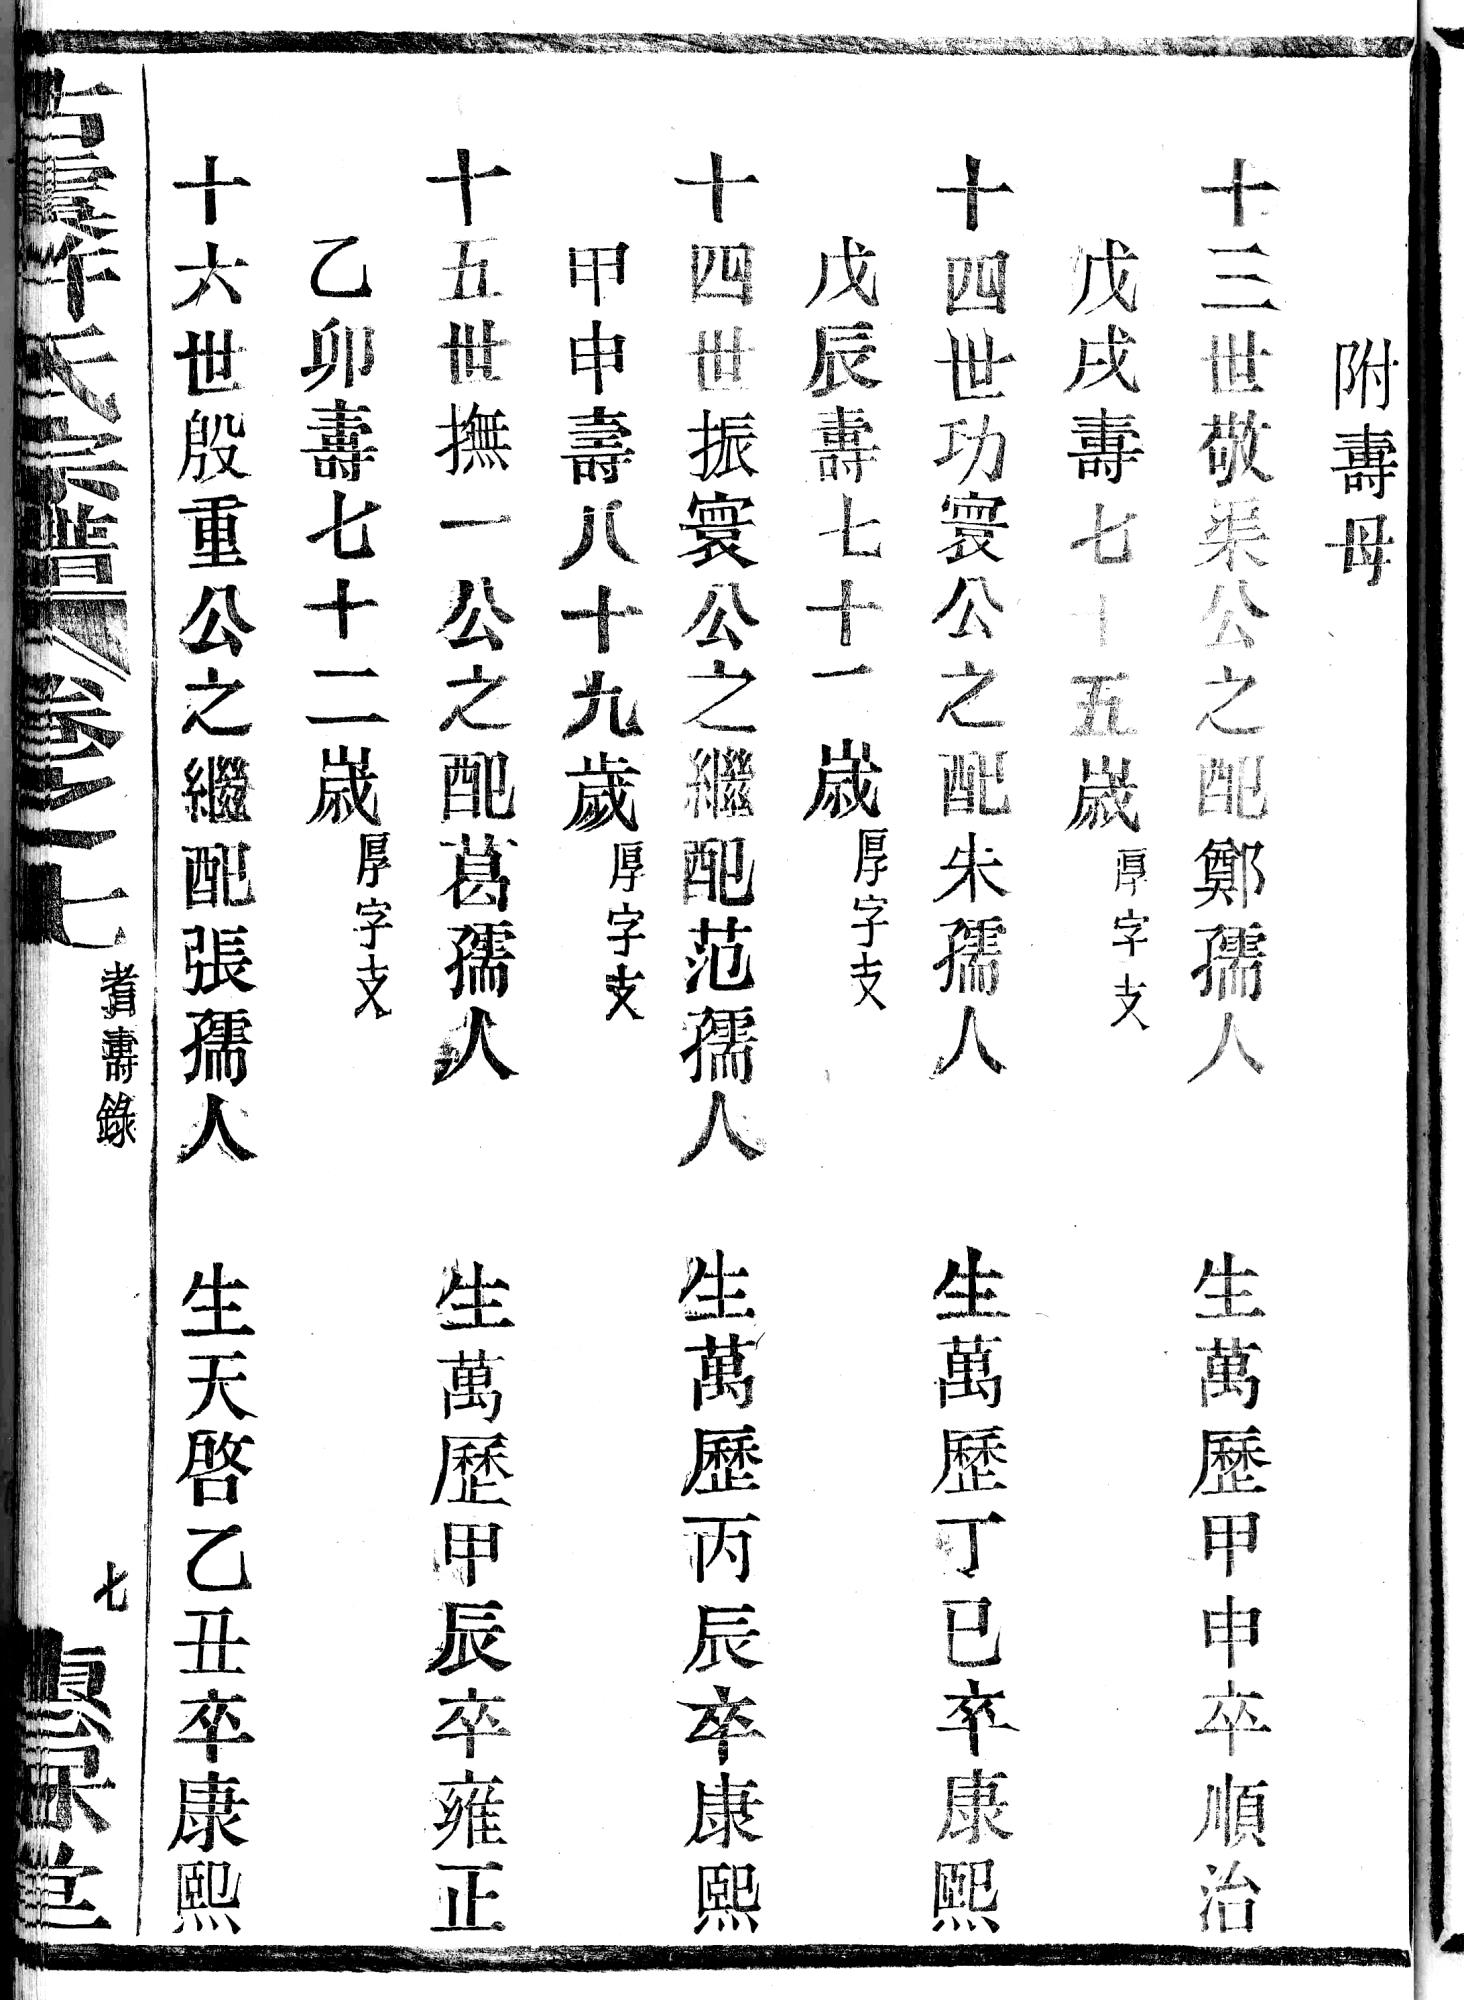 附壽母
十三世敬渠公之配鄭孺人　生萬歷甲申卒順治
戊戌壽七十五歲厚字支
十四世功寰公之配朱孺人　生萬歷丁巳卒康熙
戊辰壽七十一歲厚字支
十四世振寰公之繼配范孺人　生萬歷丙辰卒康熙
甲申壽八十九歲厚字支
十五世撫一公之配葛孺人　生萬歷甲辰卒雍正
乙卯壽七十二歲厚字支
十六世殷重公之繼配張孺人　生天啓乙丑卒康熙
氏宗譜　卷之七　耆壽錄　七　堂